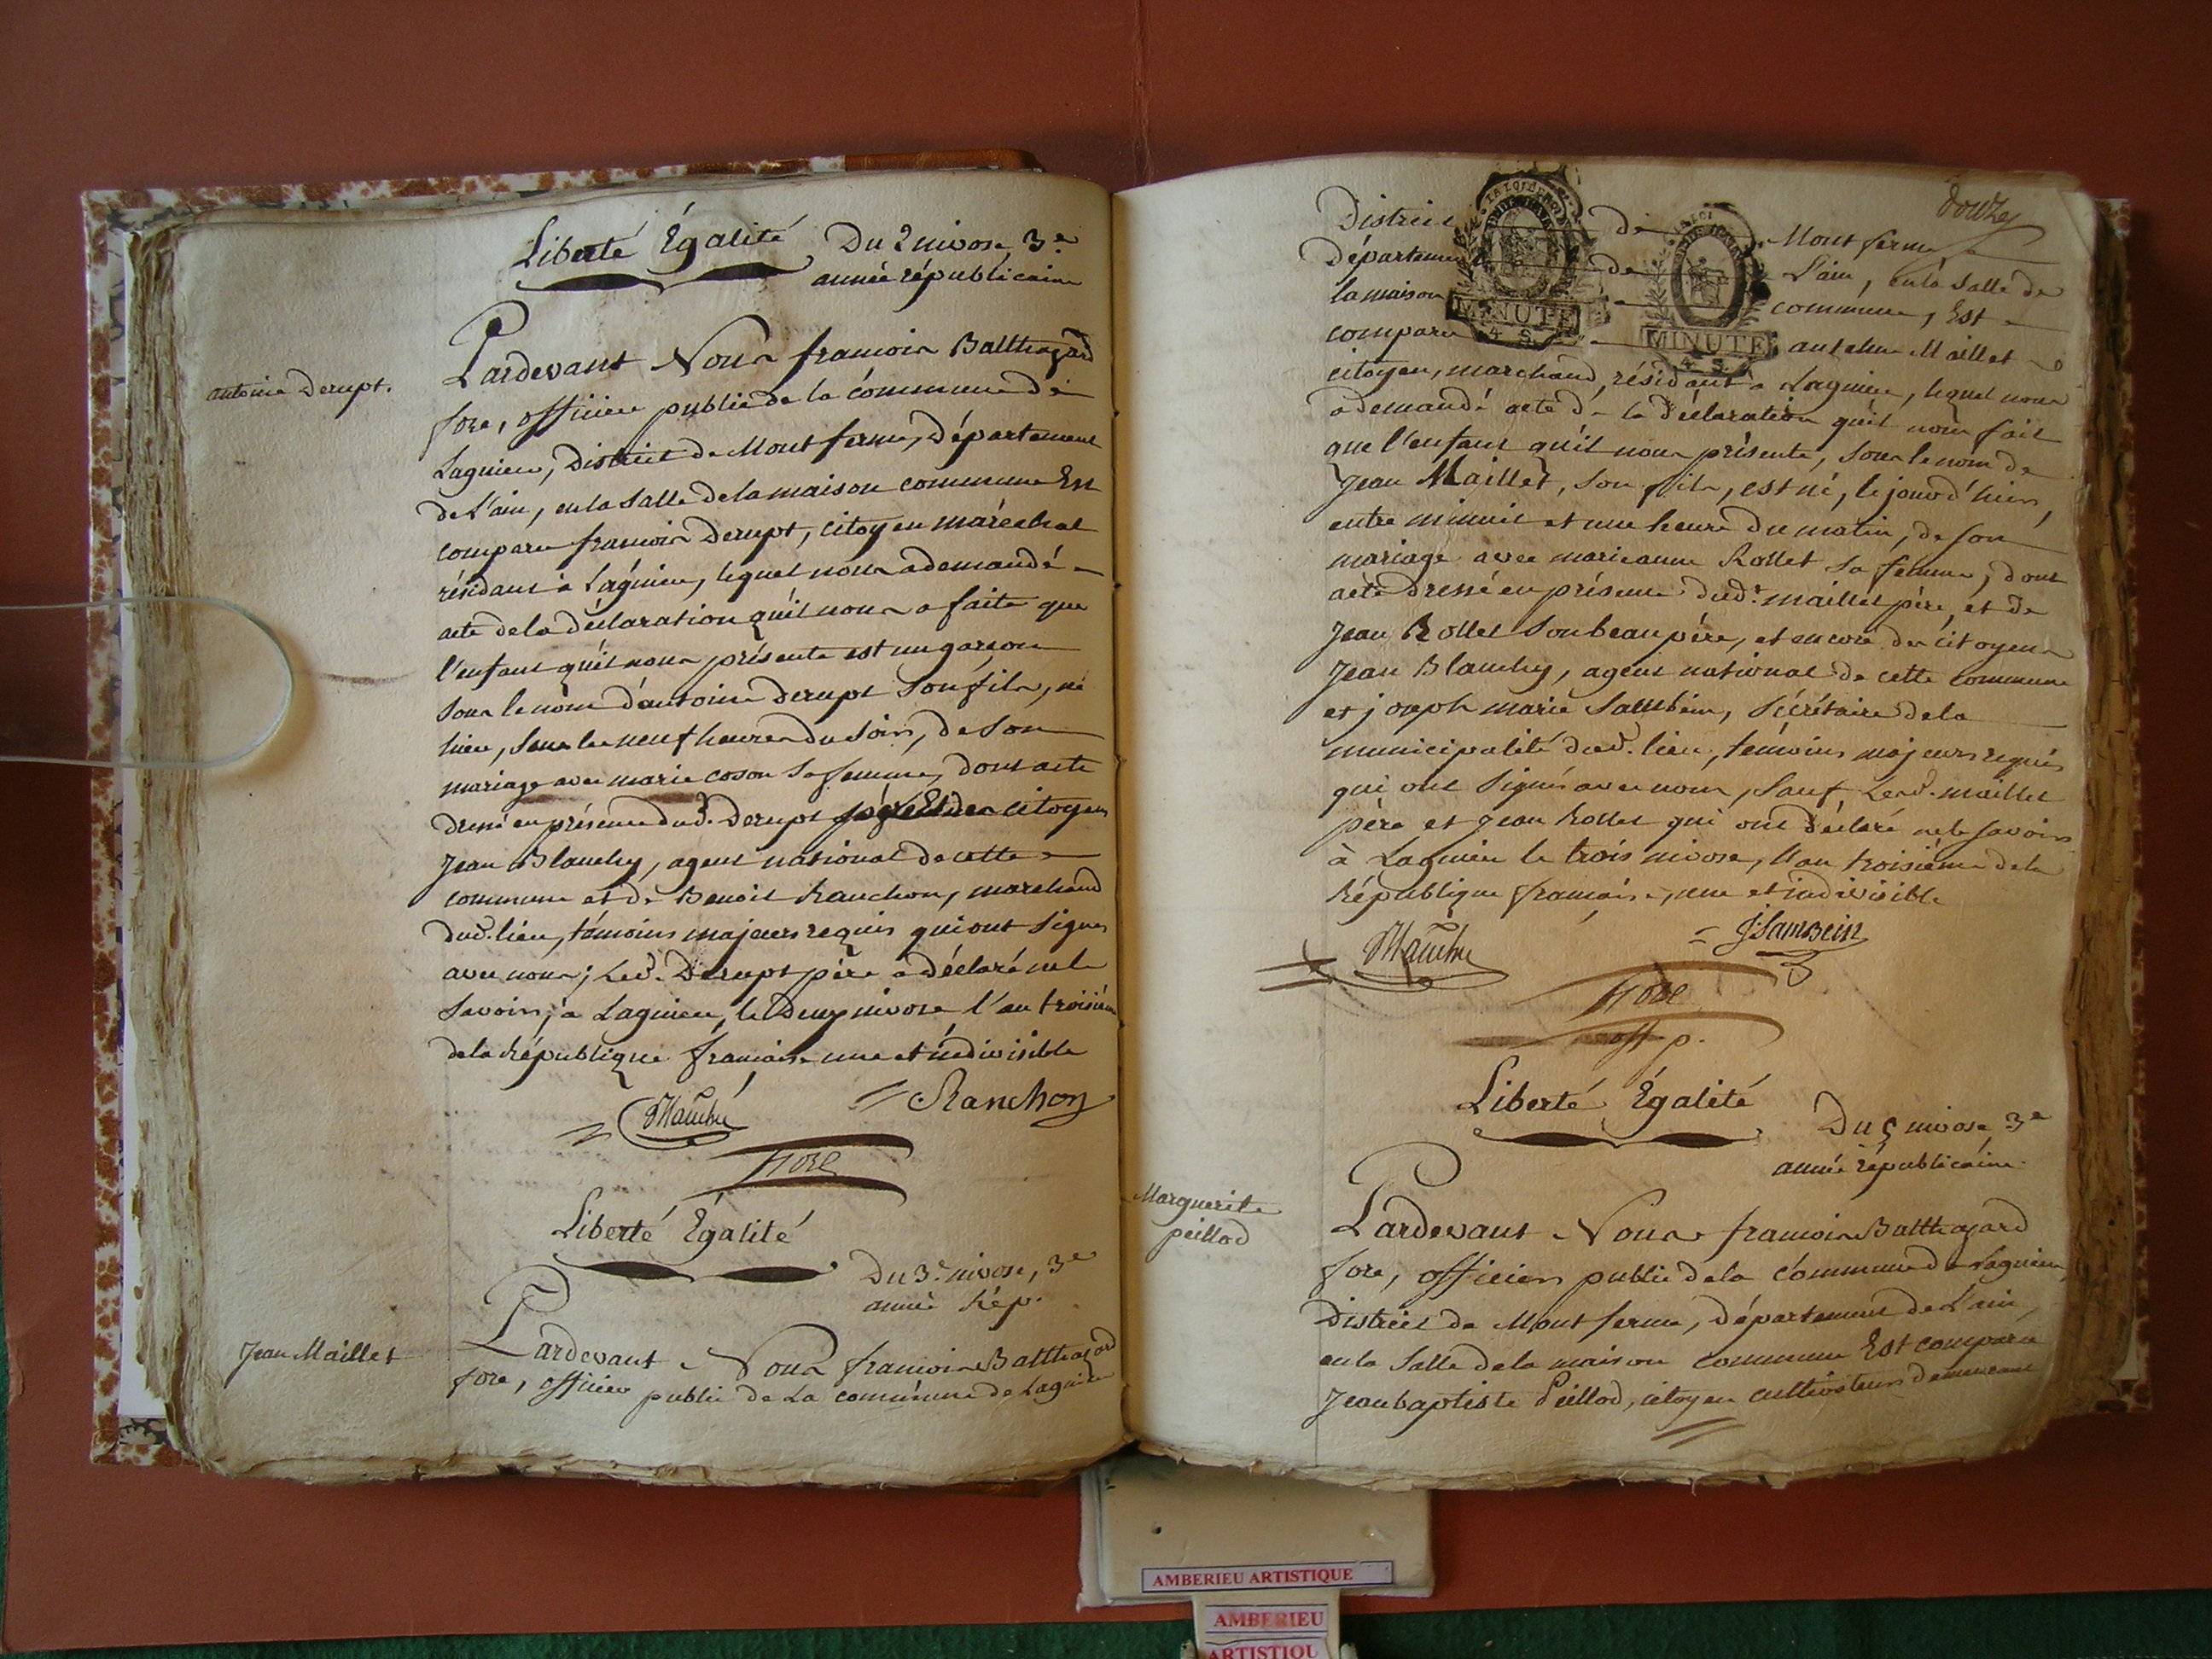 Liberté Égalité Du 2 nivose, 3.e
année républicaine
antoine Derupt.
Pardevant Nous francois Balthazard
fore, officier public de la commune de
Lagnieu, District de Mont ferme, département
de L'ain, en la salle de la maison commune Est
comparu francois Derupt, citoyen maréchal
résidant à Lagnieu, lequel nous a demandé
acte de la déclaration qu'il nous a faite que
l'enfant qu'il nous présente est un garçon
sous le nom d'antoine Derupt son fils, né
hier, sur les neuf heures du soir, de son
mariage avec marie coson sa femme, dont acte
dressé en présence dud. Derupt père Et des citoyens
Jean Blanchy, agent national de cette
commune et de Benoit Ranchon, marchand
dud. lieu, témoins majeurs requis qui ont signés
avec nous; Led. Derupt père a déclaré ne le
savoir, à Lagnieu, le deux nivose l'an troisième
de la République francaise une et indivisible
Ranchon
fore
Liberté Égalité
Du 3.e nivose, 3e
année Rép.
Jean Maillet
Pardevant Nous francois Balthazard
fore, officier public de La commune de Lagnieu
douze
District de Mont ferme,
Département de L'ain, en la salle de
la maison commune, Est
comparu antelme Maillet
citoyen, marchand, résidant a Lagnieu, lequel nous
a demandé acte de la déclaration qu'il nous fait
que l'enfant qu'il nous présente, sous le nom de
Jean Maillet, son fils, est né, le jour d'hier,
entre minuit et une heure du matin, de son
mariage avec marieanne Rollet sa femme, dont
acte dressé en présence dud.t maillet père, et de
Jean Rollet son beau père, et encore des citoyens
Jean Blanchy, agent national de cette commune
et joseph marie Sambein, sécrétaire de la
municipalité dud. lieu, témoins majeurs requis
qui ont signés avec nous, sauf Led. maillet
père et Jean Rollet qui ont déclaré ne le savoir
à Lagnieu le trois nivose, l'an troisième de la
République francaise, une et indivisible
J. Sambein
fore
off. p.
Liberté Égalité
Du 5 nivose 3e
année républicaine.
Marguerite
peillod
Pardevant Nous francois Balthazard
fore, officier public de la commune de Lagnieu,
District de Mont ferme, département de L'ain,
en la salle de la maison commune Est comparu
Jean baptiste Peillod, citoyen cultivateur demeurant
LA LOI
MINUTE
4 S.
LOI
MINUTE
4 S.
AMBERIEU ARTISTIQUE
AMBERIEU
ARTISTIQU